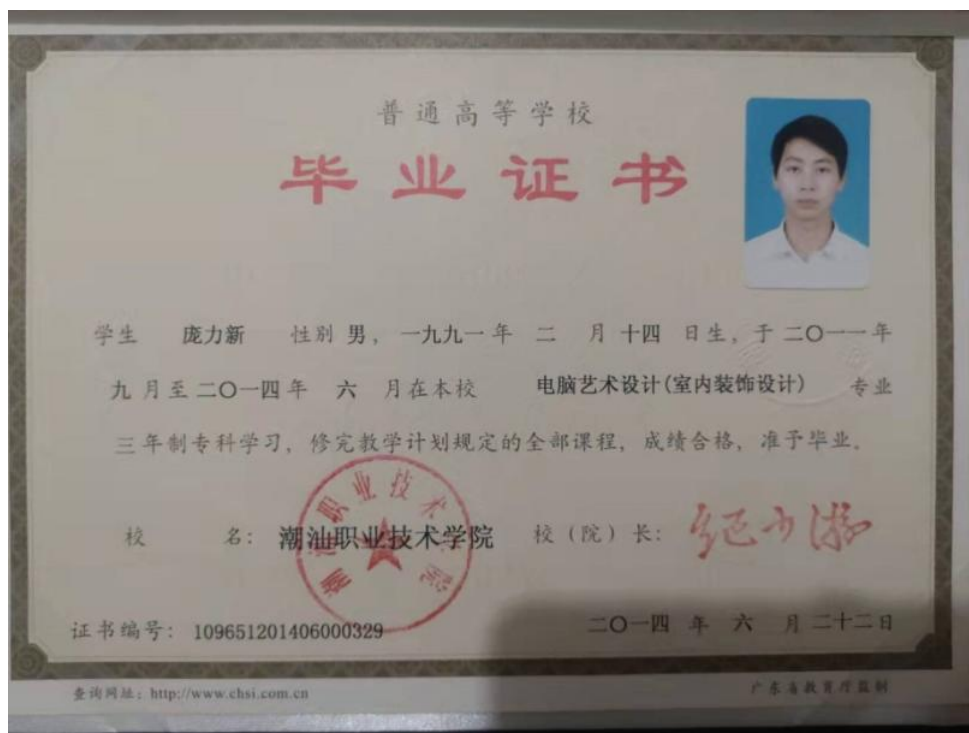 普通高等学校
毕业证书
学生 庞力新 性别 男，一九九一 年 二 月 十四 日生，于 二〇一一 年
九 月至 二〇一四 年 六 月在本校 电脑艺术设计(室内装饰设计) 专业
三 年制专科学习，修完教学计划规定的全部课程，成绩合格，准予毕业。
校 名：潮汕职业技术学院 校（院）长：纪少游
潮汕职业技术学院
证书编号：109651201406000329 二〇一四 年 六 月 二十二 日
查询网址：http://www.chsi.com.cn 广东省教育厅监制